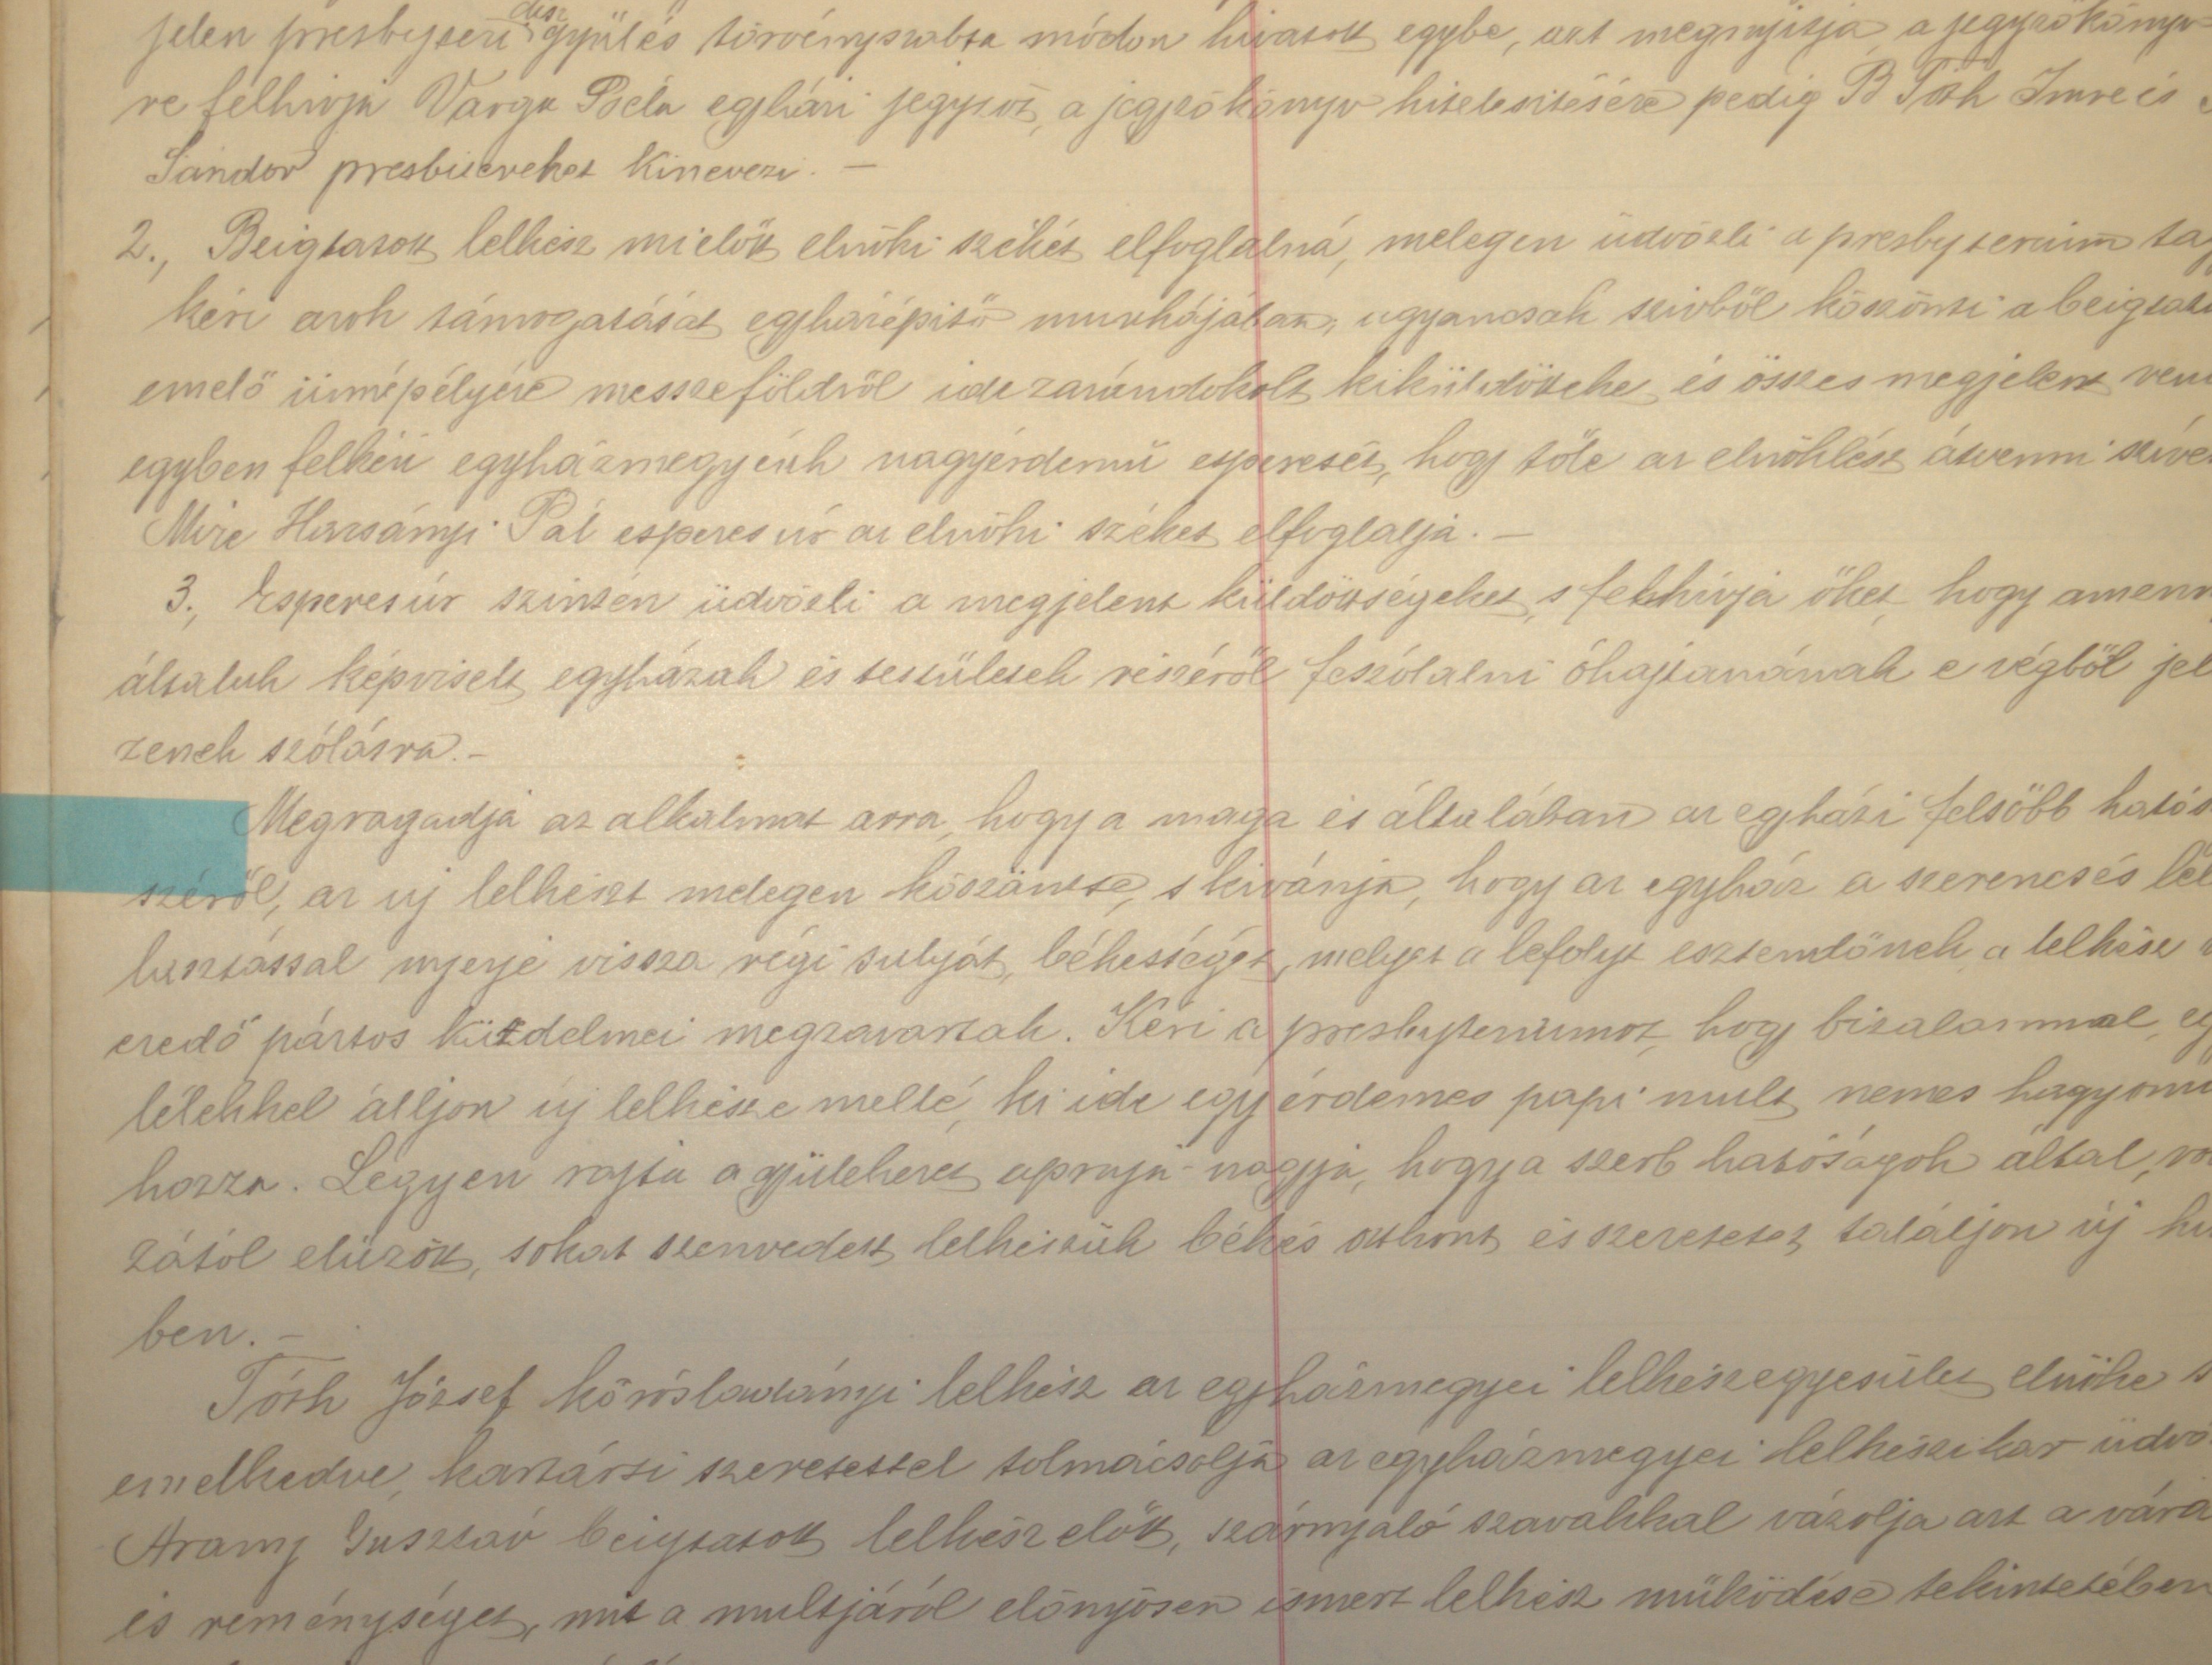 jelen presbyteri disz gyülés törvényszabta módon hivatott egybe, azt megnyitja, a jegyzőkönyv
re felhivja Varga Béla egyházi jegyzőt, a jegyzőkönyv hitelesitésére pedig B Tóth Imre és
Sándor presbitereket kinevezi. –
2., Beigtatott lelkész mielőtt elnöki székét elfoglalná, melegen üdvözli a presbyterium tag
kéri azok támogatását egyházépitő munkájában, ugyancsak szivből köszönti a beigtatá
emelő ünnepélyére messzeföldről ide zarándokolt kiküldötteke és összes megjelent ven
egyben felkéri egyházmegyénk nagyérdemű esperesét, hogy tőle az elnöklést átvenni szíve
Mire Harsányi Pál esperes úr az elnöki széket elfoglalja. –
3., Esperes úr szintén üdvözli a megjelent küldöttségeket, s felhívja őket, hogy amenn
általuk képviselt egyházak és testületek részéről feszólalni óhajtanának e végből jel
zenek szólásra. –
Megragadja az alkalmat arra, hogy a maga és általában az egyházi felsőbb hatós
széről, az uj lelkészt melegen köszöntse, s kivánja, hogy az egyház a szerencsés lel
lasztással nyerje vissza régi sulyát, békességét, melyet a lefolyt esztendőnek a lelkész
eredő pártos küzdelmei megzavartak. Kéri a presbyteriumot, hogy bizalommal, eg
lélekkel álljon új lelkésze mellé, ki ide egy érdemes papi mult nemes hagyomá
hozza. Legyen rajta a gyülekezet apraja-nagyja, hogy a szerb hatóságok által,
zától elüzött, sokat szenvedett lelkészük békés otthont és szeretetet találjon új
ben. –
Tóth József körösladányi lelkész az egyházmegyei lelkészegyesület elnöke
emelkedve, kartársi szeretettel tolmácsolja az egyházmegyei lelkészikar üdvö
Arany Gusztáv beigtatott lelkész előtt, szárnyaló szavakkal vázolja azt a vára
és reménységet, mit a multjáról előnyösen ismert lelkész működése tekintetében